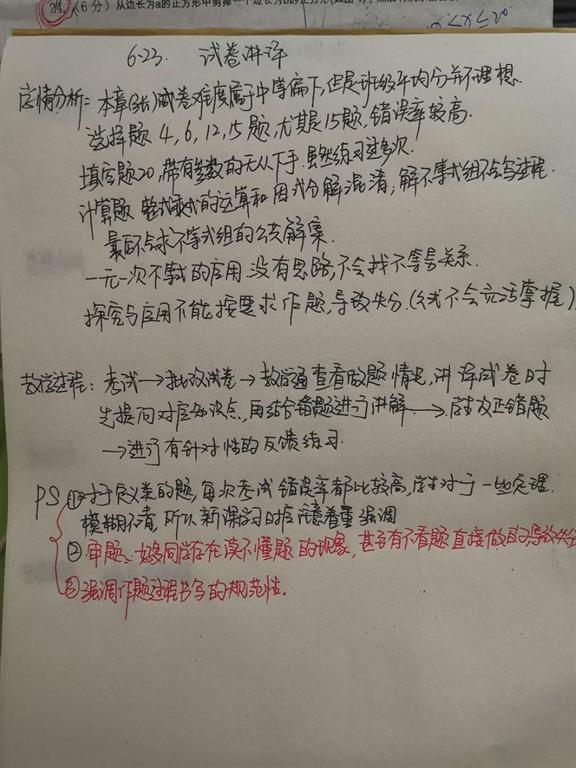 24.(6分)从边长为a的正方形中剪掉一个边长为b的正方形
6-23. 试卷讲评
学情分析:本章(张)试卷难度属于中等偏下,但是班级平均分并不理想.
选择题 4,6,12,15题,尤其是15题,错误率较高.
填空题20,带有参数的无从下手.虽然练习过多次.
计算题 整式乘式的运算和因式分解混淆,解不等式组不会写过程.
最后不会求不等式组的公共解集.
一元一次不等式的应用没有思路,不会找不等号关系.
探究与应用不能按要求作题,导致失分.(公式不会灵活掌握)
教学过程:考试→批改试卷→数学通查看做题情况,讲评试卷时
先提问对应知识点,再结合错题进行讲解→学生改正错题
→进行有针对性的反馈练习.
PS ①对于定义类的题,每次考试错误率都比较高,学生对于一些定理.
模糊不清,所以新课学习时应注意着重强调
②审题、好多同学存在读不懂题的现象,甚至有不看题直接做的导致失分
③强调作题过程书写的规范性.